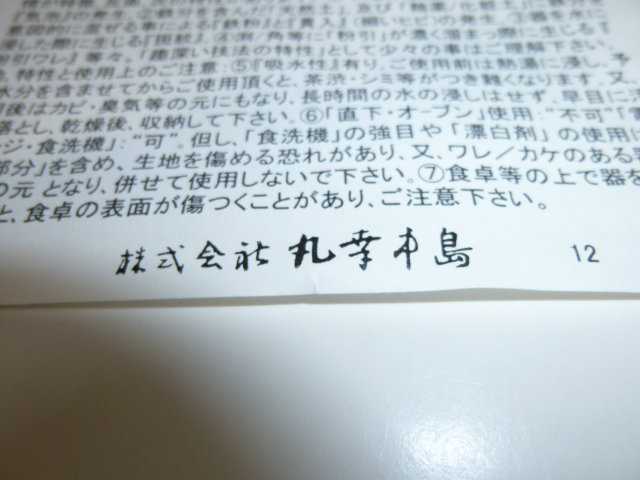 意図的に混ぜる事)』『鉄粉』と『貫入』(細いヒビ)の発生、③器を水に
浸した際に生じる『斑紋』、④渕/角等に『粉引』が濃く溜まった際に生じる『
粉引ワレ』等々、「趣深い技法の特性」として少々の事はご理解下さい。
、特性と使用上のご注意:⑤『吸水性』有り、ご使用前は熱湯に浸し、予
水分を含ませてからご使用頂くと、茶渋・シミ等がつき難くなります。又、
後はカビ・臭気等の元にもなり、長時間の水の浸しはせず、早目に
落とし、乾燥後、収納して下さい。⑥「直下・オーブン」使用:"不可"「
ンジ・食洗機」:"可"。但し、「食洗機」の強目や「漂白剤」の使用
部分」を含め、生地を傷める恐れがあり、又、ワレ/カケのある
の元となり、併せて使用しないで下さい。⑦食卓等の上で器を
と、食卓の表面が傷つくことがあり、ご注意下さい。
株式会社 丸幸中島 12